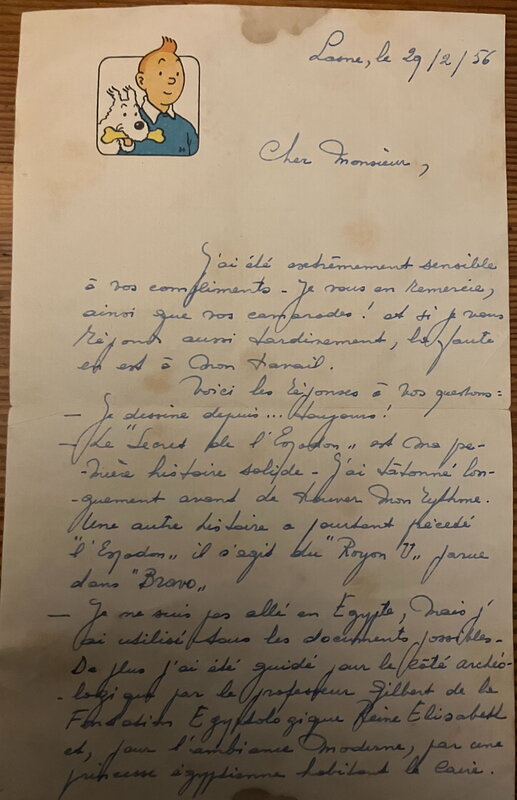 Lasne, le 29/2/56
Cher Monsieur,
J'ai été extrêmement sensible
à vos compliments - Je vous en remercie,
ainsi que vos camarades ! et si je vous
réponds aussi tardivement, la faute
en est à mon travail.
Voici les réponses à vos questions :
- Je dessine depuis... toujours !
- Le "Secret de l'Espadon" est ma pre-
-mière histoire solide - J'ai tâtonné lon-
-guement avant de trouver mon rythme.
Une autre histoire a pourtant précédé
"l'Espadon" il s'agit du "Rayon U" parue
dans "Bravo"
- Je ne suis pas allé en Egypte, mais j'
ai utilisé tous les documents possibles -
De plus j'ai été guidé pour le côté archéo-
-logique par le professeur Gilbert de la
Fondation Egyptologique Reine Elisabeth
et, pour l'ambiance moderne, par une
princesse égyptienne habitant le Caire.